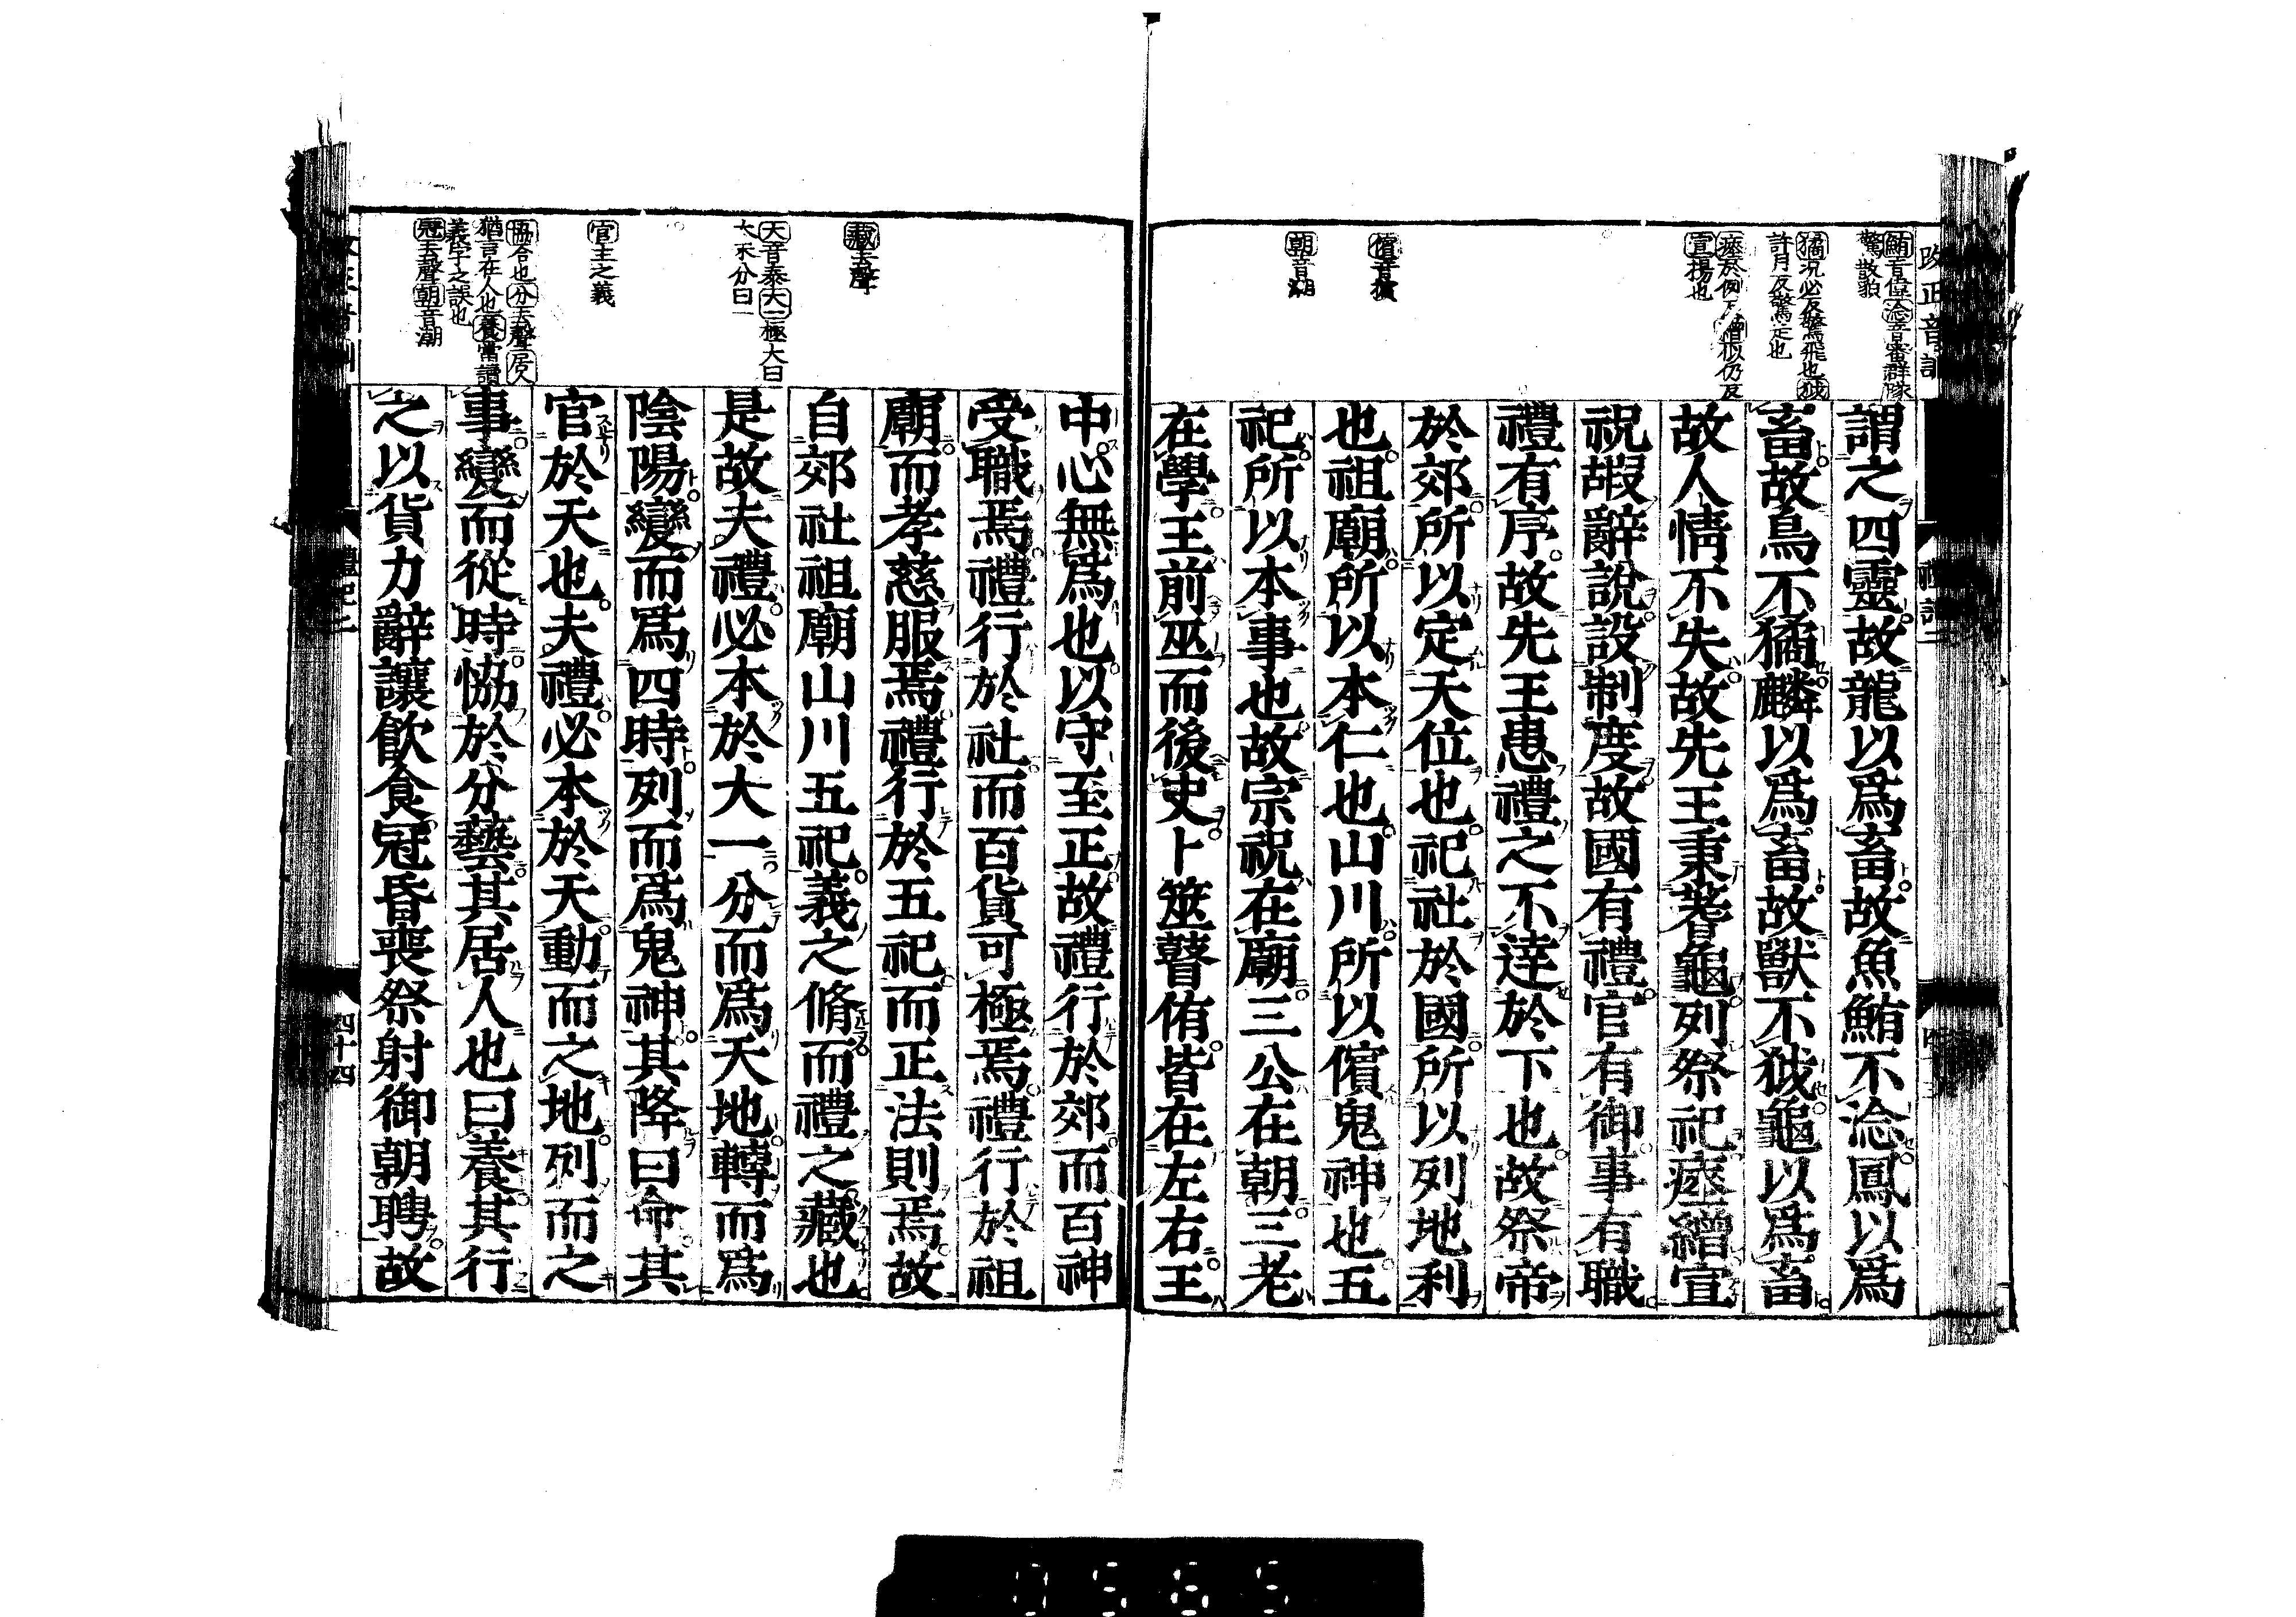 鮪音位淰音審群隊
驚散貌
獝况必反驚飛也狘
許月反驚走也
瘞於例反繒似仍反
宣揚也
儐音擯
朝音潮
謂之四靈故龍以爲畜故魚鮪不淰鳳以爲
畜故鳥不獝麟以爲畜故獸不狘龜以爲畜
故人情不失故先王秉蓍龜列祭祀瘞繒宣
祝嘏辭說設制度故國有禮官有御事有職
禮有序故先王患禮之不達於下也故祭帝
於郊所以定天位也祀社於國所以列地利
也祖廟所以本仁也山川所以儐鬼神也五
祀所以本事也故宗祝在廟三公在朝三老
在學王前巫而後史卜筮瞽侑皆在左右王
藏去聲
大音泰大一極大曰
大未分曰一
官主之義
協合也分去聲居人
猶言在人也養當讀
義字之誤也
冠去聲朝音潮
中心無爲也以守至正故禮行於郊而百神
受職焉禮行於社而百貨可極焉禮行於祖
廟而孝慈服焉禮行於五祀而正法則焉故
自郊社祖廟山川五祀義之脩而禮之藏也
是故夫禮必本於大一分而爲天地轉而爲
陰陽變而爲四時列而爲鬼神其降曰命其
官於天也夫禮必本於天動而之地列而之
事變而從時協於分藝其居人也曰養其行
之以貨力辭讓飲食冠昏喪祭射御朝聘故
禮記二
四十四
0565